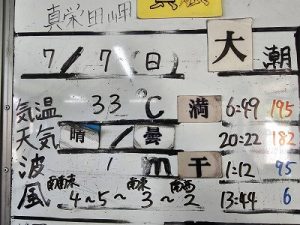 真栄田岬
7/7(日) 大潮
気温 33℃ 満 6:49 195
天気 晴/曇 20:22 182
波 1m 干 1:12 95
風 南南東4~5~南東3~南西2 13:44 6